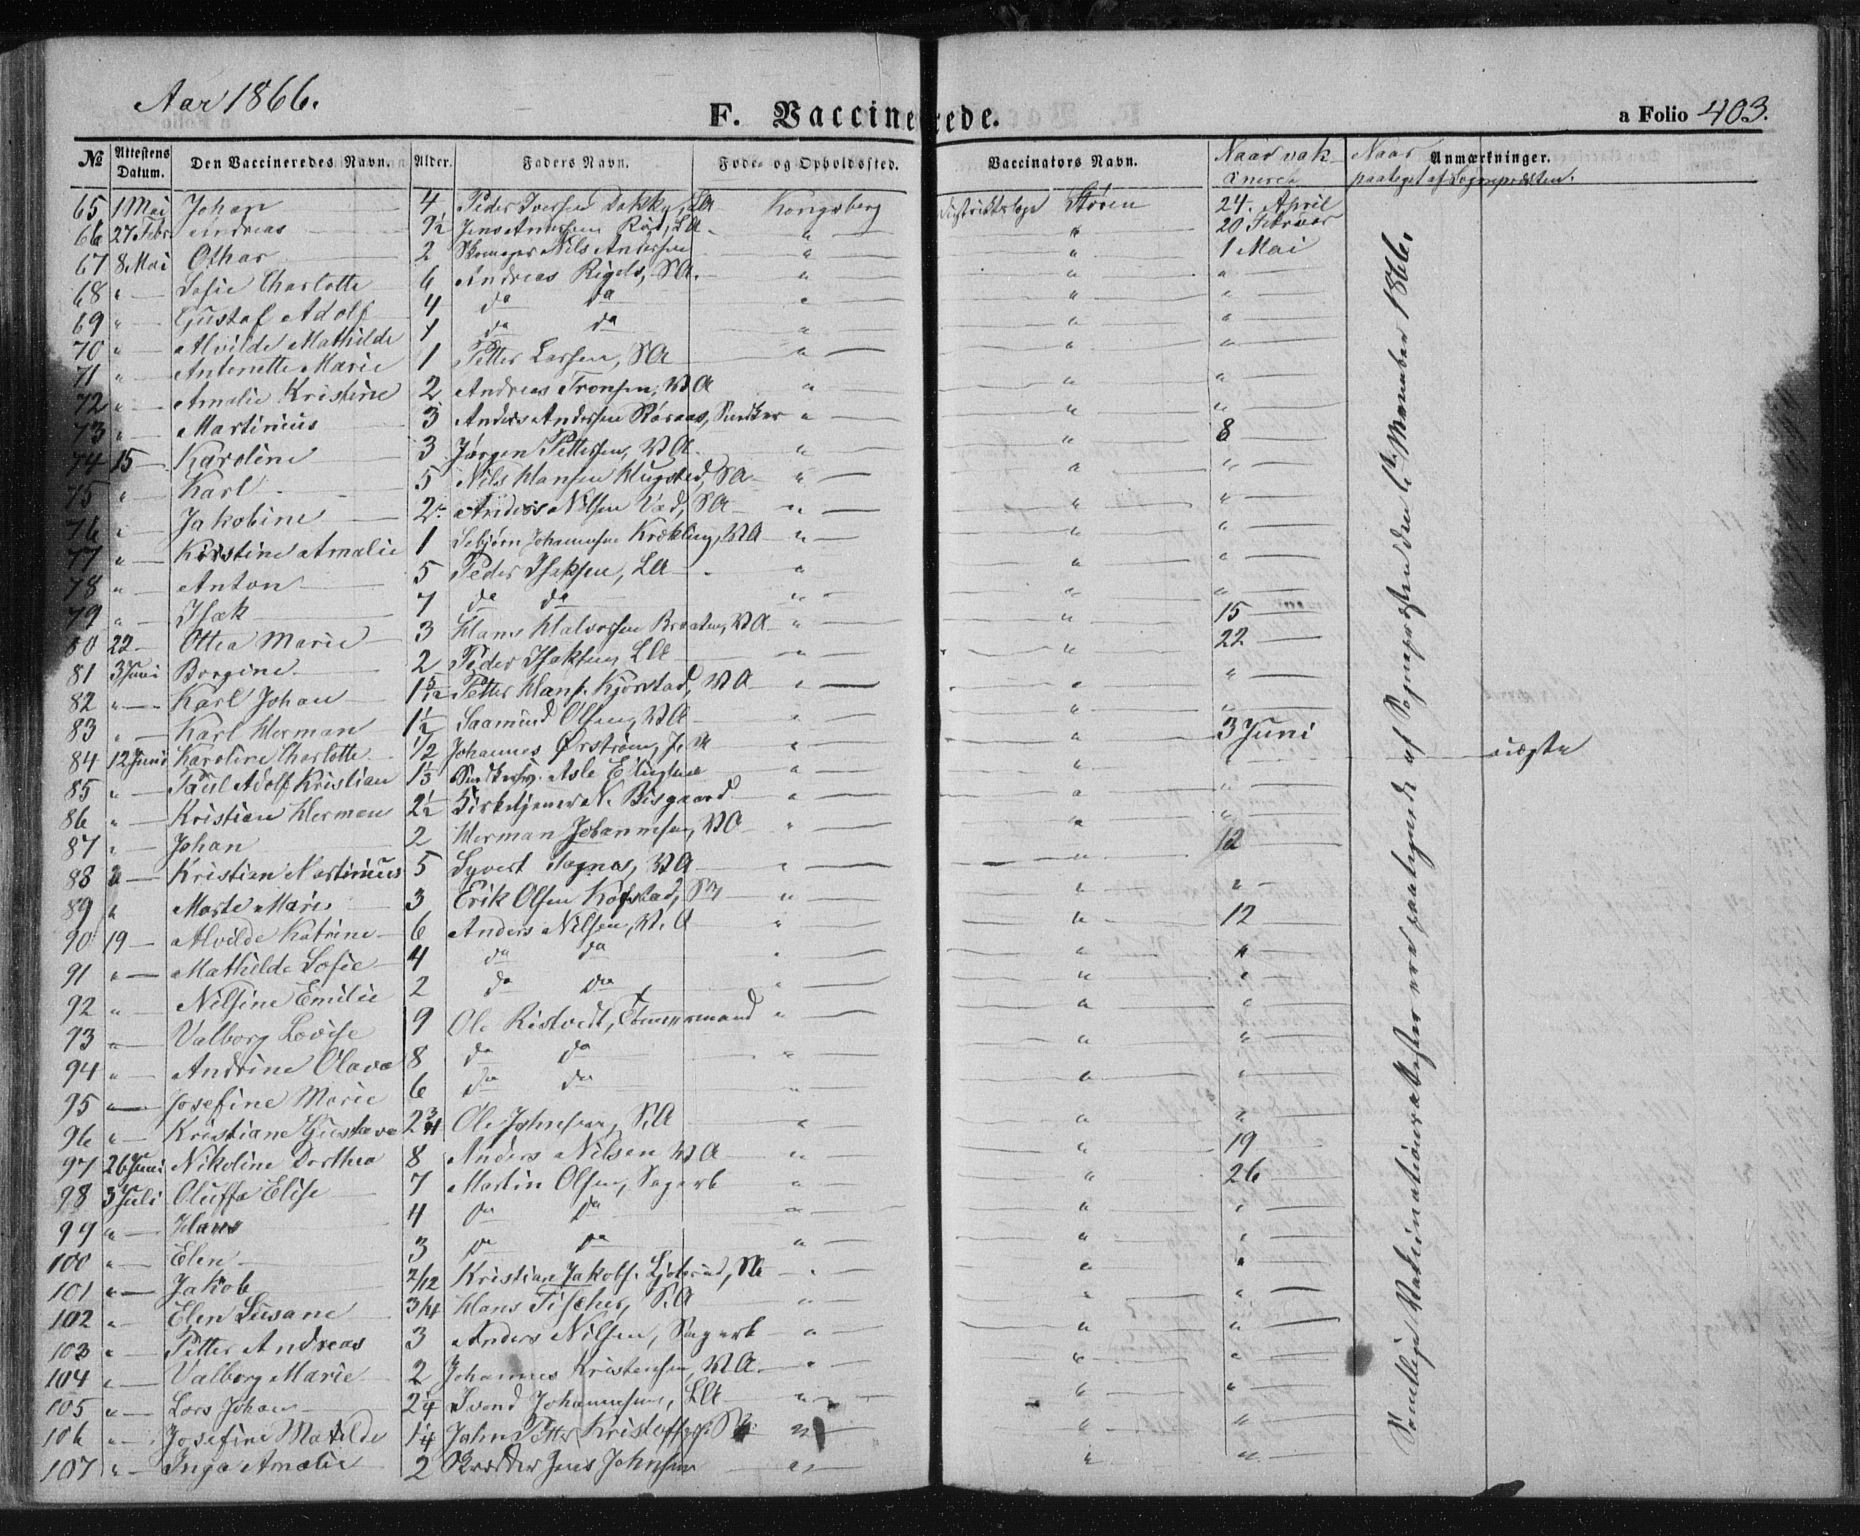 Aar 1866.
F. Vaccinerede.
a Folio 403.
№ Attestens Datum. Den Vaccineredes Navn. Alder. Faders Navn. Føde- og Opholdssted. Vaccinators Navn. Naar vakcinerede Naar paateget af Sognepræsten. Anmærkninger.
65 1 Mai Johan 4 Peder Iversen LA Kongsberg Distriktslæge Støren 24. April
66 27 Febr. Andreas 9½ Jens LA " " 20 Februar
67 8 Mai Othar 2 Skomager Nils Andersen " " 1 Mai
68 " Sofie Charlotte 6 Andreas Rigels, SA. " " "
69 " Gustaf Adolf 4 da da " " "
70 " Alvilde Mathilde 1 da da " " "
71 " Antonette Marie 1 Petter Larsen, SA " " "
72 " Amalie Kristine 2 Andreas Tronsen, VA " " "
73 " Martinius 3 Anders Andersen Snedker " " "
74 15 Karoline 3 Jørgen Pettersen, VA " " 8
75 " Karl 5 Nils Hansen SA " " "
76 " Jakobine 2 Anders Nilsen SA " " "
77 " Kristine Amalie 1 Johannesen Krekling, VA " " "
78 " Anton 5 Peder Isaksen, LA " " "
79 " Isak 7 da da " " "
80 22 Othea Marie 3 Hans Halvorsen Braaten, VA " " 15
81 3 Juni Borgine 2 Peder Isaksen, LA " " 22
82 " Karl Johan 1 5/12 Petter Hans. Kjørstad, VA " " "
83 " Karl Herman 1½ Saamund Olsen, VA " " "
84 12 Juni Karoline Charlotte 1/2 Johannes Ørstrøm, " " 3 Juni
85 " Paul Adolf Kristian 1⅓ Asle " " " uægte
86 " Kristian Herman 2½ Kirketjener N. Bisgaard " " "
87 " Johan 2 Herman Johannesen, VA " " "
88 " Kristian Martinius 5 Syvert VA " " 12
89 " Marte Marie 3 Erik Olsen " " "
90 19 Alvilde Katrine 6 Anders Nilsen, VA " " 12
91 " Mathilde Sofie 4 da da " " "
92 " Nilsine Emilie 2 da da " " "
93 " Valborg Lovise 9 Ole Ristvedt, Tømmermand " " "
94 " Andrine Olava 8 da da " " "
95 " Josefine Marie 6 da da " " "
96 " Kristiane Gustava 2¾ Ole Johnsen, SA " " "
97 26 Juni Nikoline Dorthea 8 Anders Nilsen VA " " 19
98 3 Juli Oluffa Elise 7 Martin Olsen, Sagarb " " 26
99 " Hans 4 da da " " "
100 " Elen 3 da da " " "
101 " Jakob 2/12 Kristian Jakobs. " " "
102 " Elen Susane 3/4 Hans Fischer, SA " " "
103 " Petter Andreas 3 Anders Nilsen, Sagarb " " "
104 " Valborg Marie 2 Johannes Kristensen, VA " " "
105 " Lars Johan 2¼ Svend Johannesen, LA " " "
106 " Josefine Matilde 1¼ John Petter Kristoffers. " " "
107 " Inga Amalie 2 Skrædder Jens Johnsen " " "
Samtlige Vakcinationsattester ere paategnede af Sognepræsten den November 1866.